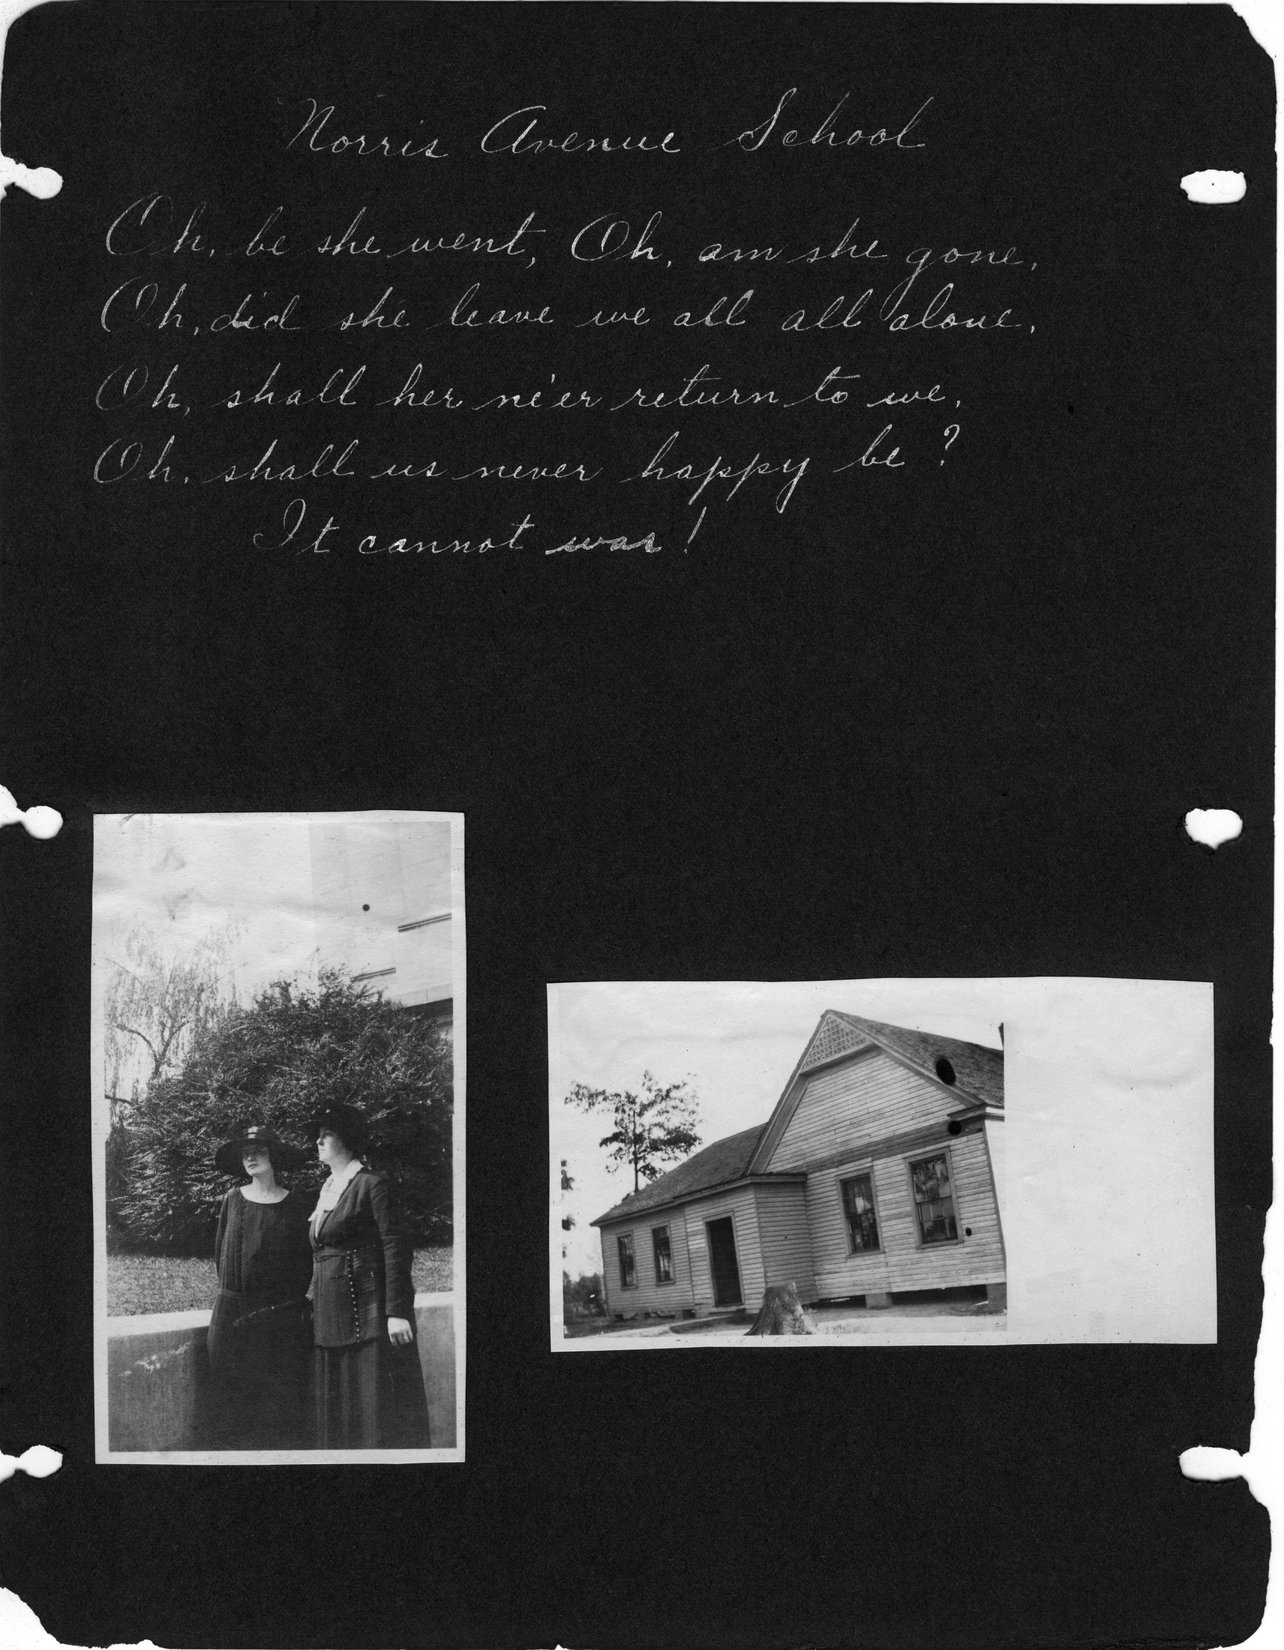 Norris Avenue School
Oh, be she went, Oh, am she gone,
Oh, did she leave we all all alone,
Oh, shall her ne'er return to we,
Oh, shall us never happy be?
It cannot was!